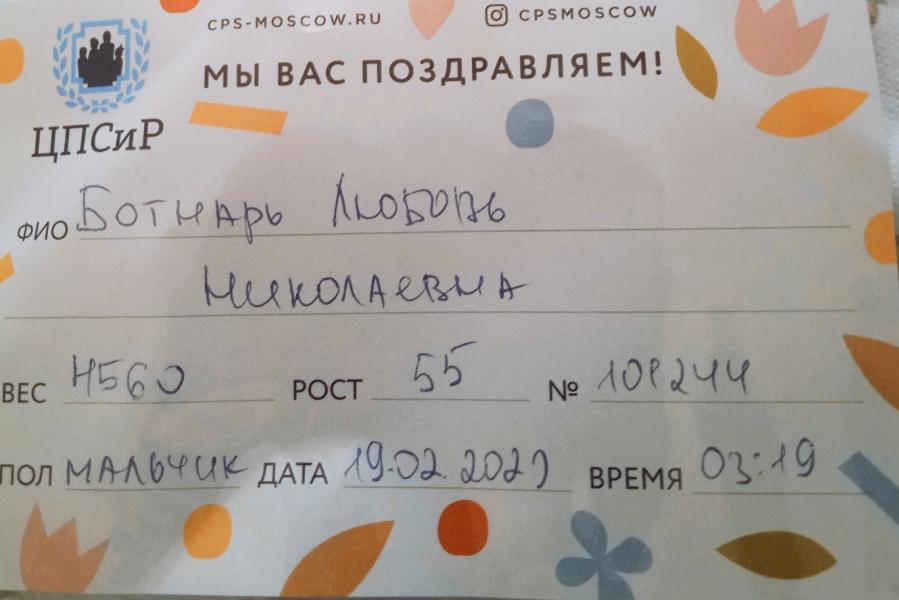 CPS-MOSCOW.RU CPSMOSCOW
МЫ ВАС ПОЗДРАВЛЯЕМ!
ЦПСиР
ФИО Ботнарь Любовь
Николаевна
ВЕС 4560 РОСТ 55 №
ПОЛ МАЛЬЧИК ДАТА ВРЕМЯ 03:19